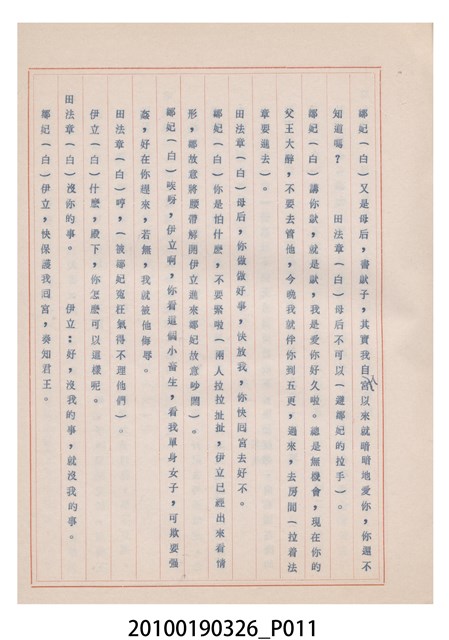 鄒妃(白)又是母后,書獃子,其實我自入宮以來就暗暗地愛你,你還不
知道嗎? 田法章(白)母后不可以(避鄒妃的拉手)。
鄒妃(白)講你獃,就是獃,我是愛你好久啦。總是無機會,現在你的
父王大醉,不要去管他,今晚我就伴你到五更,過來,去房間(拉着法
章要進去)。
田法章(白)母后,你做做好事,快放我,你快回宮去好不。
鄒妃(白)你是怕什麼,不要緊啦(兩人拉拉扯扯,伊立已經出來看情
形,鄒故意將腰帶解開伊立進來鄒妃故意吵鬧)。
鄒妃(白)唉呀,伊立啊,你看這個小畜生,看我單身女子,可欺要强
姦,好在你趕來,若無,我就被他侮辱。
田法章(白)哼,(被鄒妃冤枉氣得不理他們)。
伊立(白)什麼,殿下,你怎麼可以這樣呢。
田法章(白)沒你的事。 伊立:好,沒我的事,就沒我的事。
鄒妃(白)伊立,快保護我回宮,奏知君王。
20100190326_P011